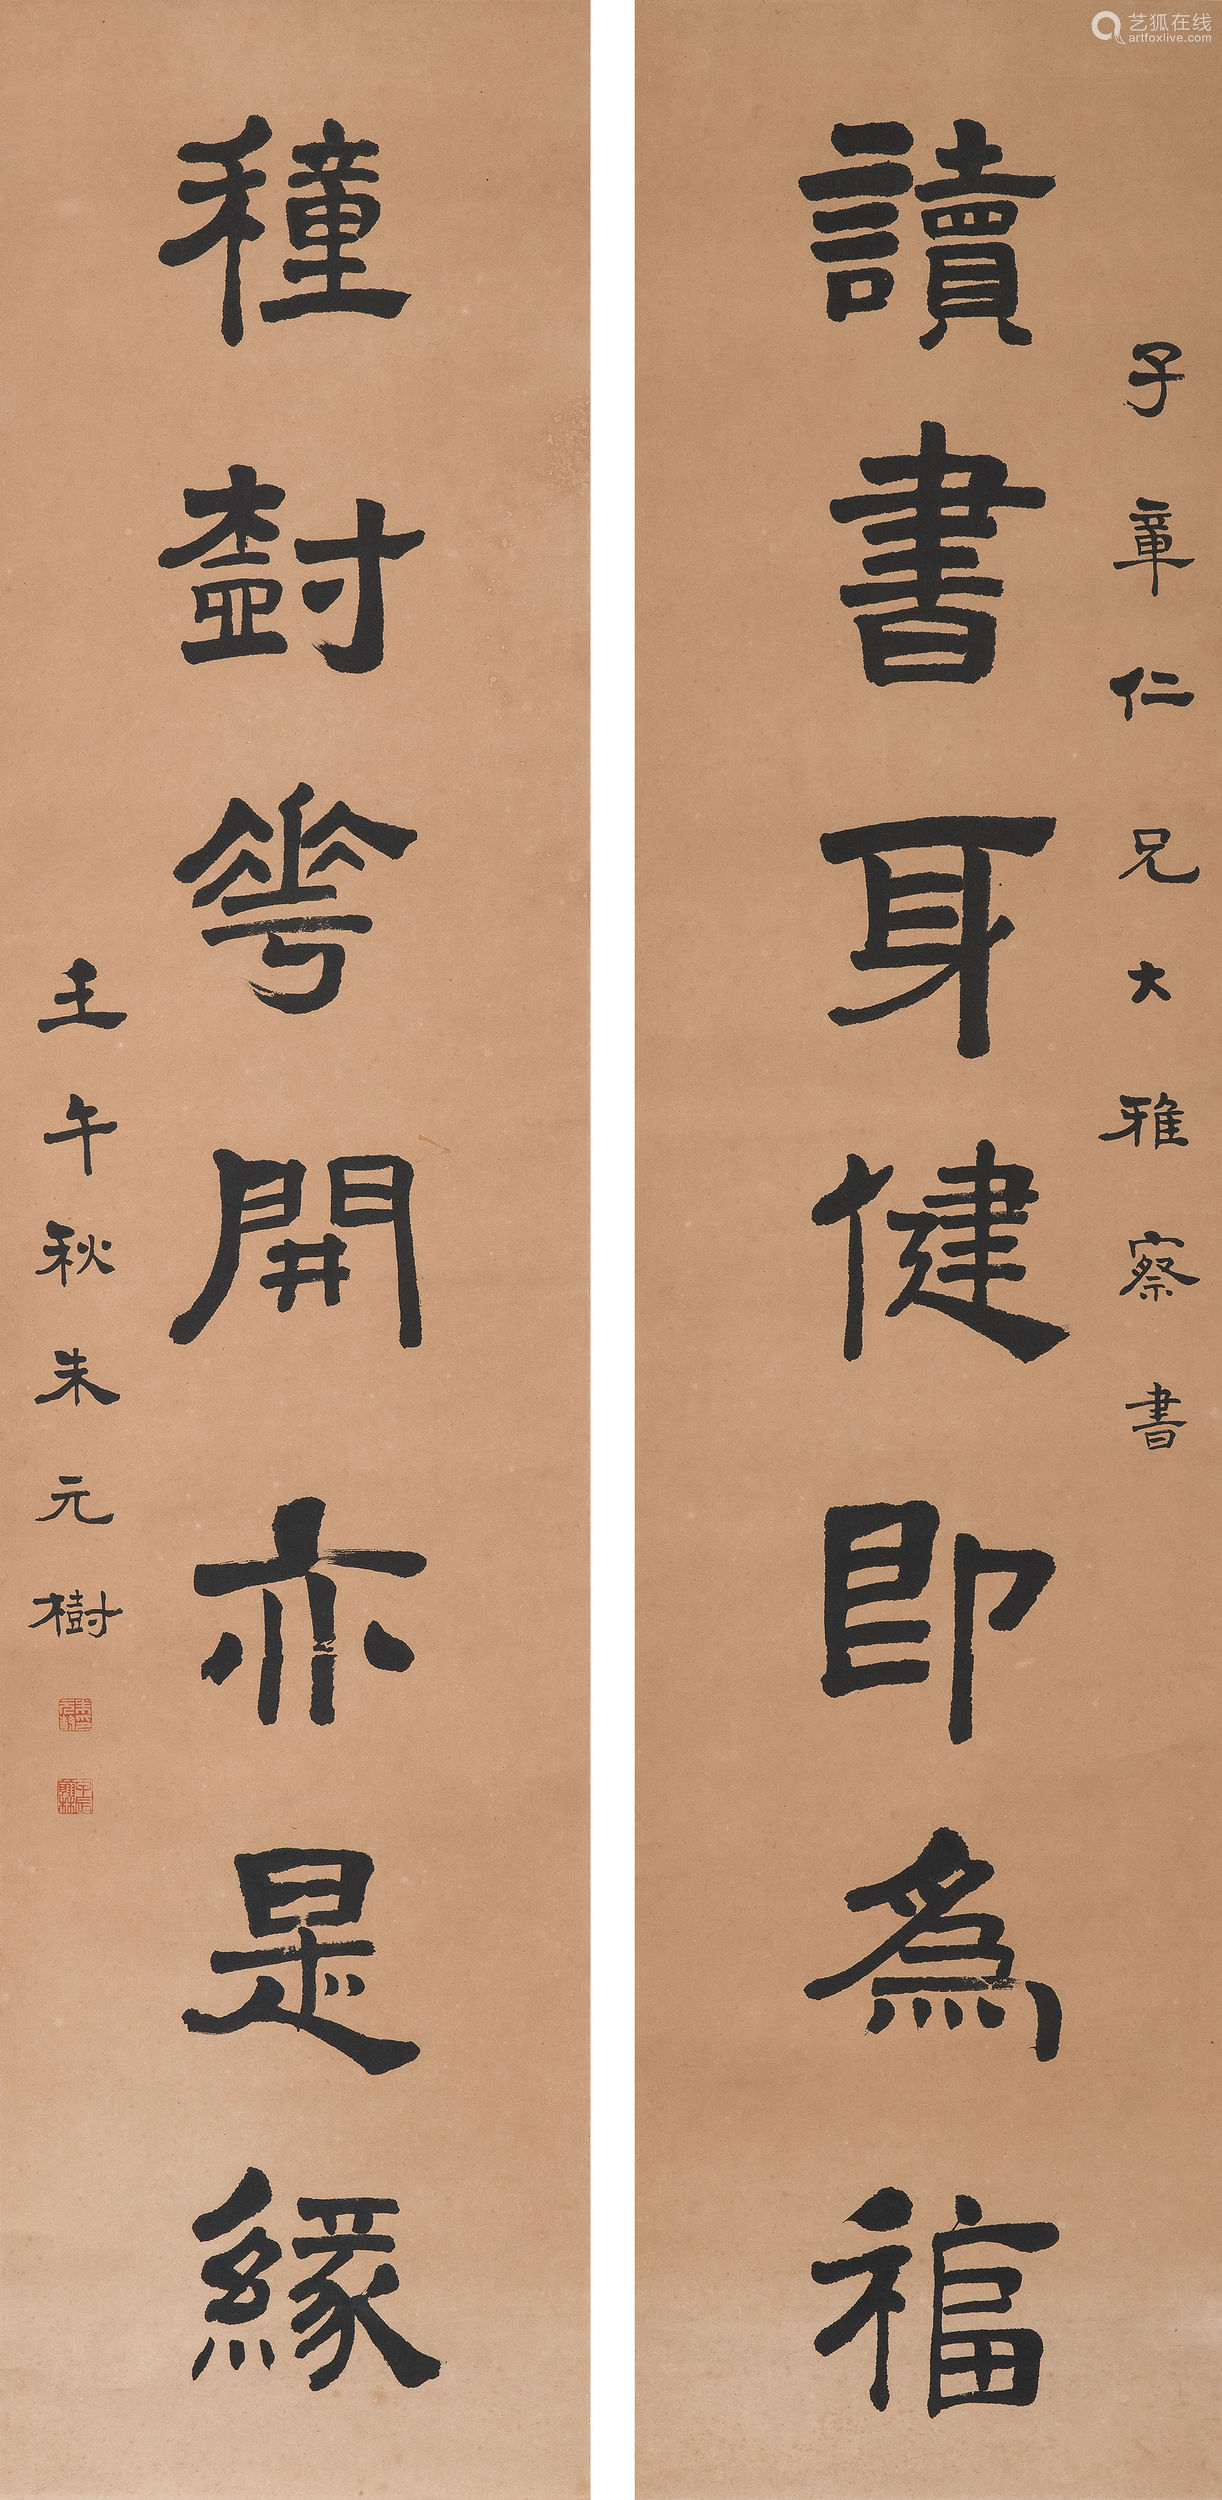 艺狐在线
artfoxlive.com
子章仁兄大雅察書
讀書身健即爲福
穜樹華開亦是緣
壬午秋朱元樹